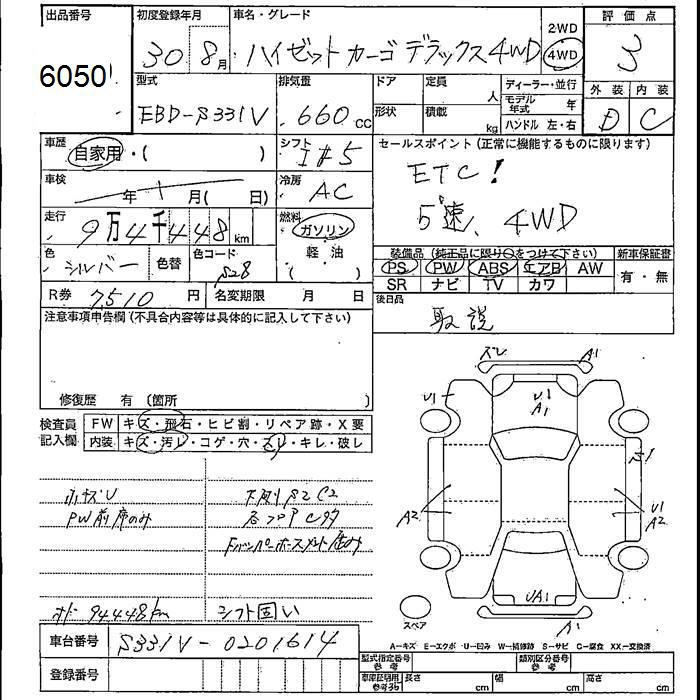 出品番号
初度登録年月
車名・グレード
2WD
4WD
評価点
6050
30 8月
ハイゼットカーゴ デラックス4WD
3
型式
排気量
ドア
定員
人
ディーラー・並行
モデル年式 年
外装
内装
EBD-S331V
660cc
形状
積載
kg
ハンドル 左・右
D
C
車歴
自家用・( )
シフト
I#5
セールスポイント(正常に機能するものに限ります)
ETC!
5速、4WD
車検
年 月( 日)
冷房
AC
走行
9万4千448km
燃料
ガソリン
軽・油
( )
色
シルバー
色替
色コード
S28
装備品(純正品に限り○をつけて下さい)
新車保証書
PS PW ABS エアB AW
SR ナビ TV カワ
有・無
R券
7510円
名変期限 月 日
後日品
取説
注意事項申告欄(不具合内容等は具体的に記入して下さい)
修復歴 有(箇所 )
検査員
記入欄
FW
キズ・飛石・ヒビ割・リペア跡・X要
内装
キズ・汚レ・コゲ・穴・スレ・キレ・破し
PW前席のみ
94448km
シフト固い
ズレ
A1
U1
U1
A1
S1
A2
U1
A2
UA1
A1
スペア
A-キズ E-エクボ U-凹み W-補修跡 S-サビ C-腐食 XX-交換済
車台番号
S331V-0201614
登録番号
型式指定番号
類別区分番号
車庫証明用
参考数
長さ cm
幅 cm
高さ cm